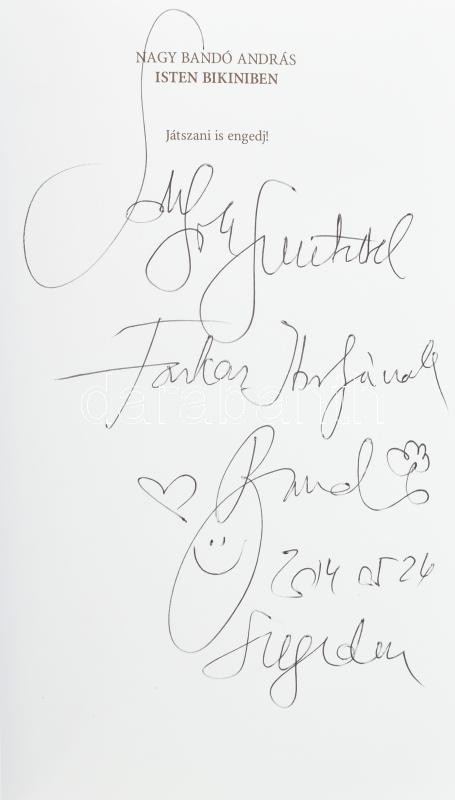 NAGY BANDÓ ANDRÁS
ISTEN BIKINIBEN
Játszani is engedj!
Sok szeretettel
Farkas Ibolyának
Bandó
2014 05 24
Szegeden
darabanth